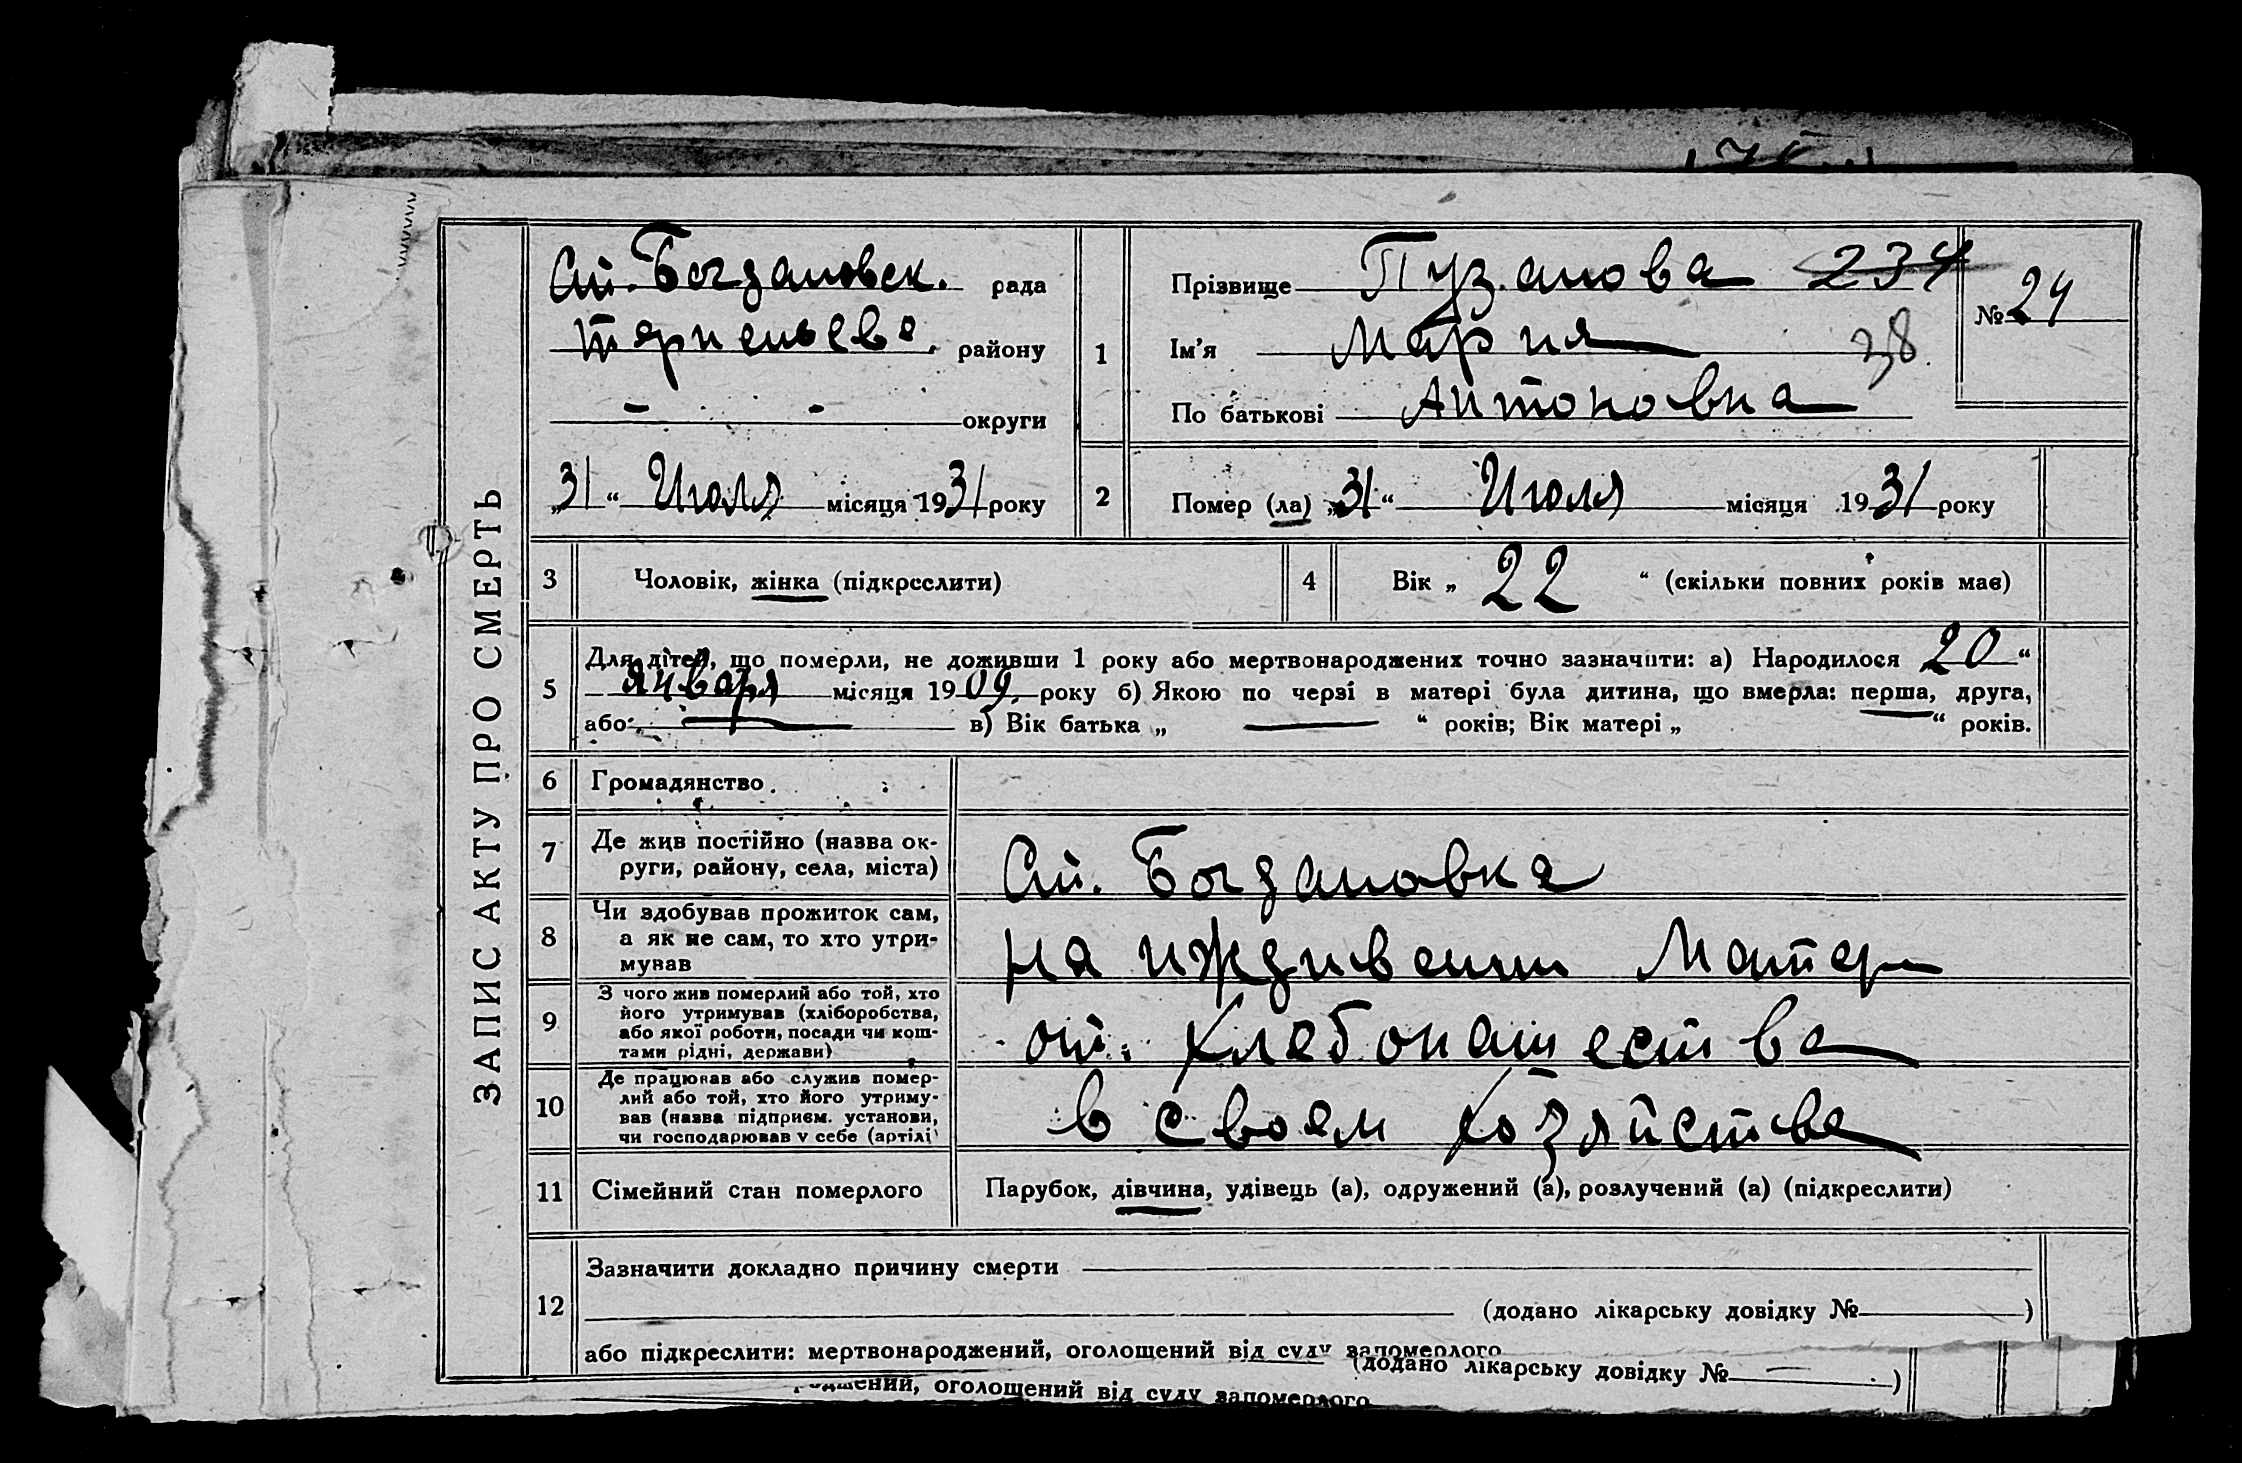 ЗАПИС АКТУ ПРО СМЕРТЬ
Ст. Богдановск. рада
района
округи
„31“ Июля місяця 1931 року
1
Прізвище Пузанова 234
Ім’я Мария 38
По батькові Антоновна
№ 24
2 Помер (ла) „31“ Июля місяця 1931 року
3 Чоловік, жінка (підкреслити)
4 Вік „22“ (скільки повних років має)
5 Для дітей, що померли, не доживши 1 року або мертвонароджених точно зазначити: а) Народилося 20“
Января місяця 1909 року б) Якою по черзі в матері була дитина, що вмерла: перша, друга,
або в) Вік батька „ “ років; Вік матері „ “ років.
6 Громадянство
7 Де жив постійно (назва ок-
руги, району, села, міста)
Ст. Богдановка
8 Чи здобував прожиток сам,
а як не сам, то хто утри-
мував
на иждивении Матери
9 З чого жив померлий або той, хто
його утримував (хліборобства,
або якої роботи, посади чи кош-
тами рідні, держави)
от. хлебопашества
10 Де працював або служив помер-
лий або той, хто його утриму-
вав (назва підприєм. установи,
чи господарював у себе (артілі)
в своем хозяйстве
11 Сімейний стан померлого
Парубок, дівчина, удівець (а), одружений (а), розлучений (а) (підкреслити)
12 Зазначити докладно причину смерти
(додано лікарську довідку № )
або підкреслити: мертвонароджений, оголошений від суду запомерлого
(додано лікарську довідку № )
оголошений від суду запомерлого